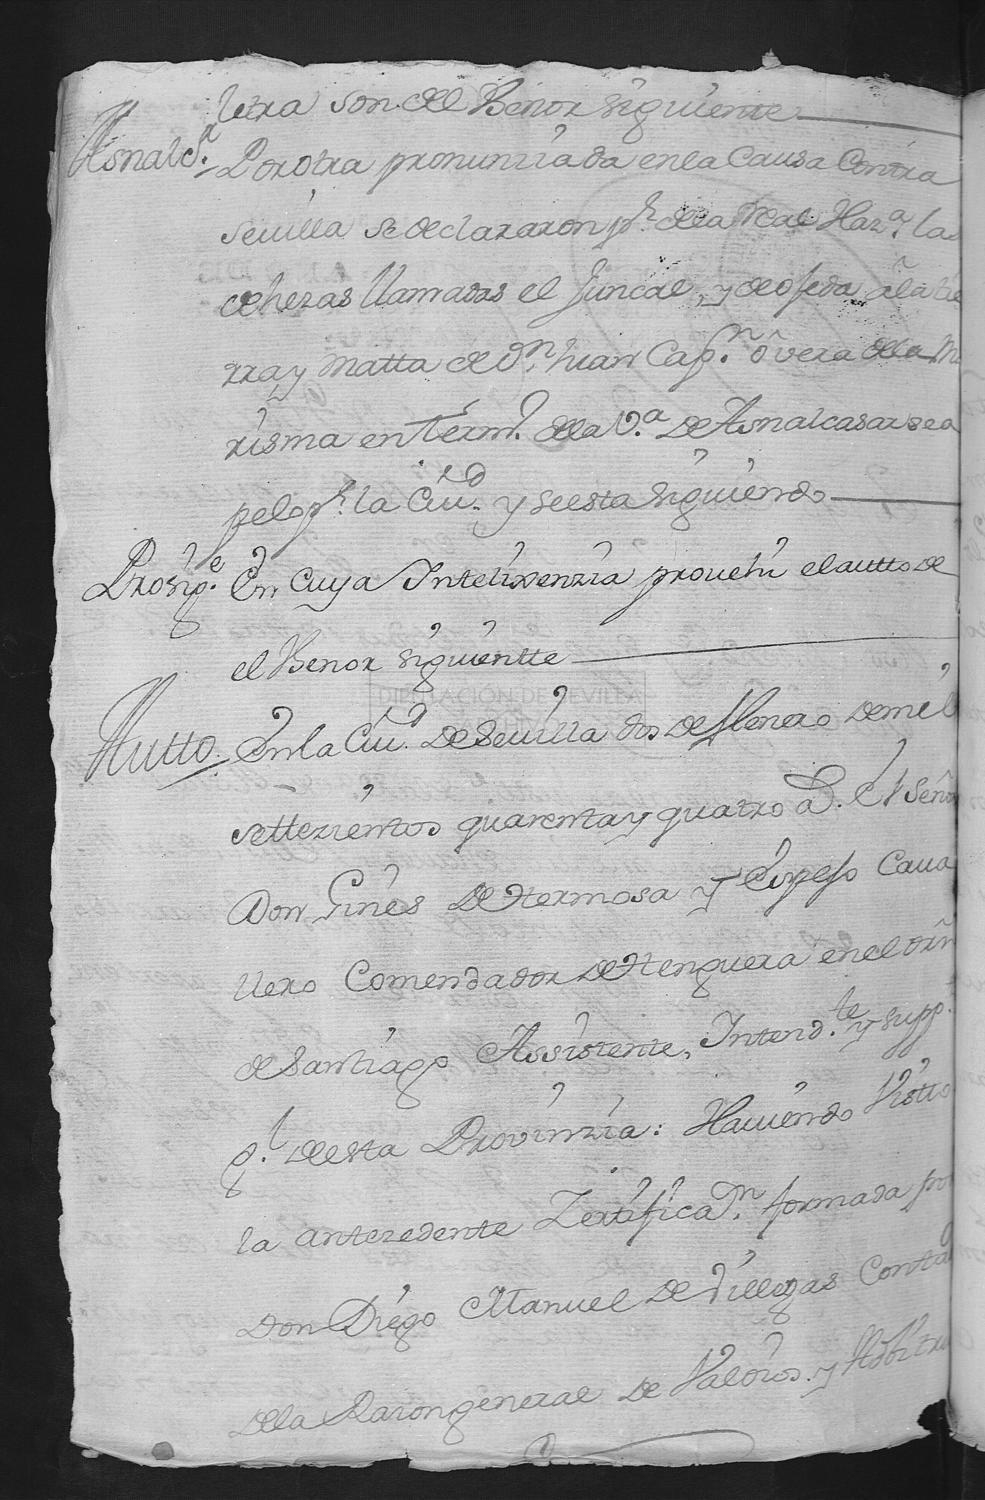 letra son del Thenor siguiente
Asnalcr. Por otra pronunziada en la Causa Contra
Sevilla se declararon pr. de la real Haza. las
dehezas llamadas el Juncal, y
rra y Matta de Dn. Juan Capn. overa de la Ma
risma en term. de la Va. de Asnalcasar se a
pelo pr. la Ciud. y se esta siguiendo
Prosige. En Cuya Intelixenzia provehi el autto de
el Thenor siguientte
DIPUTACIÓN DE SEVILLA
ARCHIVO
Autto. En la Ciud. de Sevilla dos de Henero de mil
settezientos quarenta y quatro as. El Señor
Don Gines de Hermosa y Espejo Cava
llero Comendador de Henguera en el orn
de Santiago Assistente, Intendte. y supp.
gl. de esta Provinzia: Haviendo Visto
la antezedente Zertifican. formada por
Don Diego Manuel de Villegas Conta
de la Razon general de Valores. y Adbitri